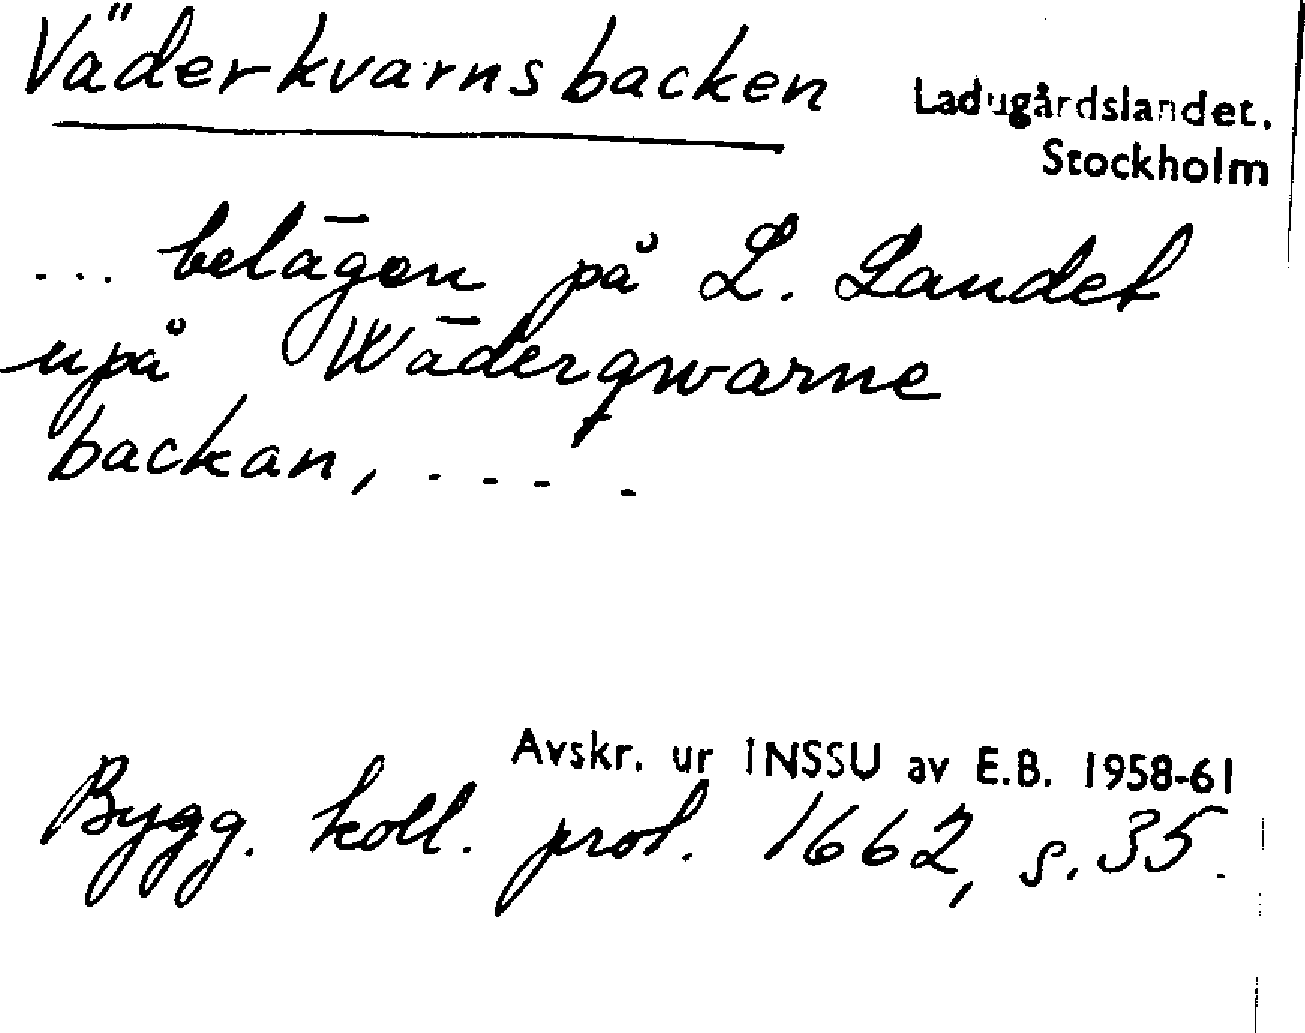 Väderkvarnsbacken
Ladugårdslandet.
Stockholm
... belägen på L. Landet
upå Wäderqwarne
backan, ....
Avskr. ur INSSU av E.B. 1958-61
Bygg. koll. prot. 1662, s. 35.